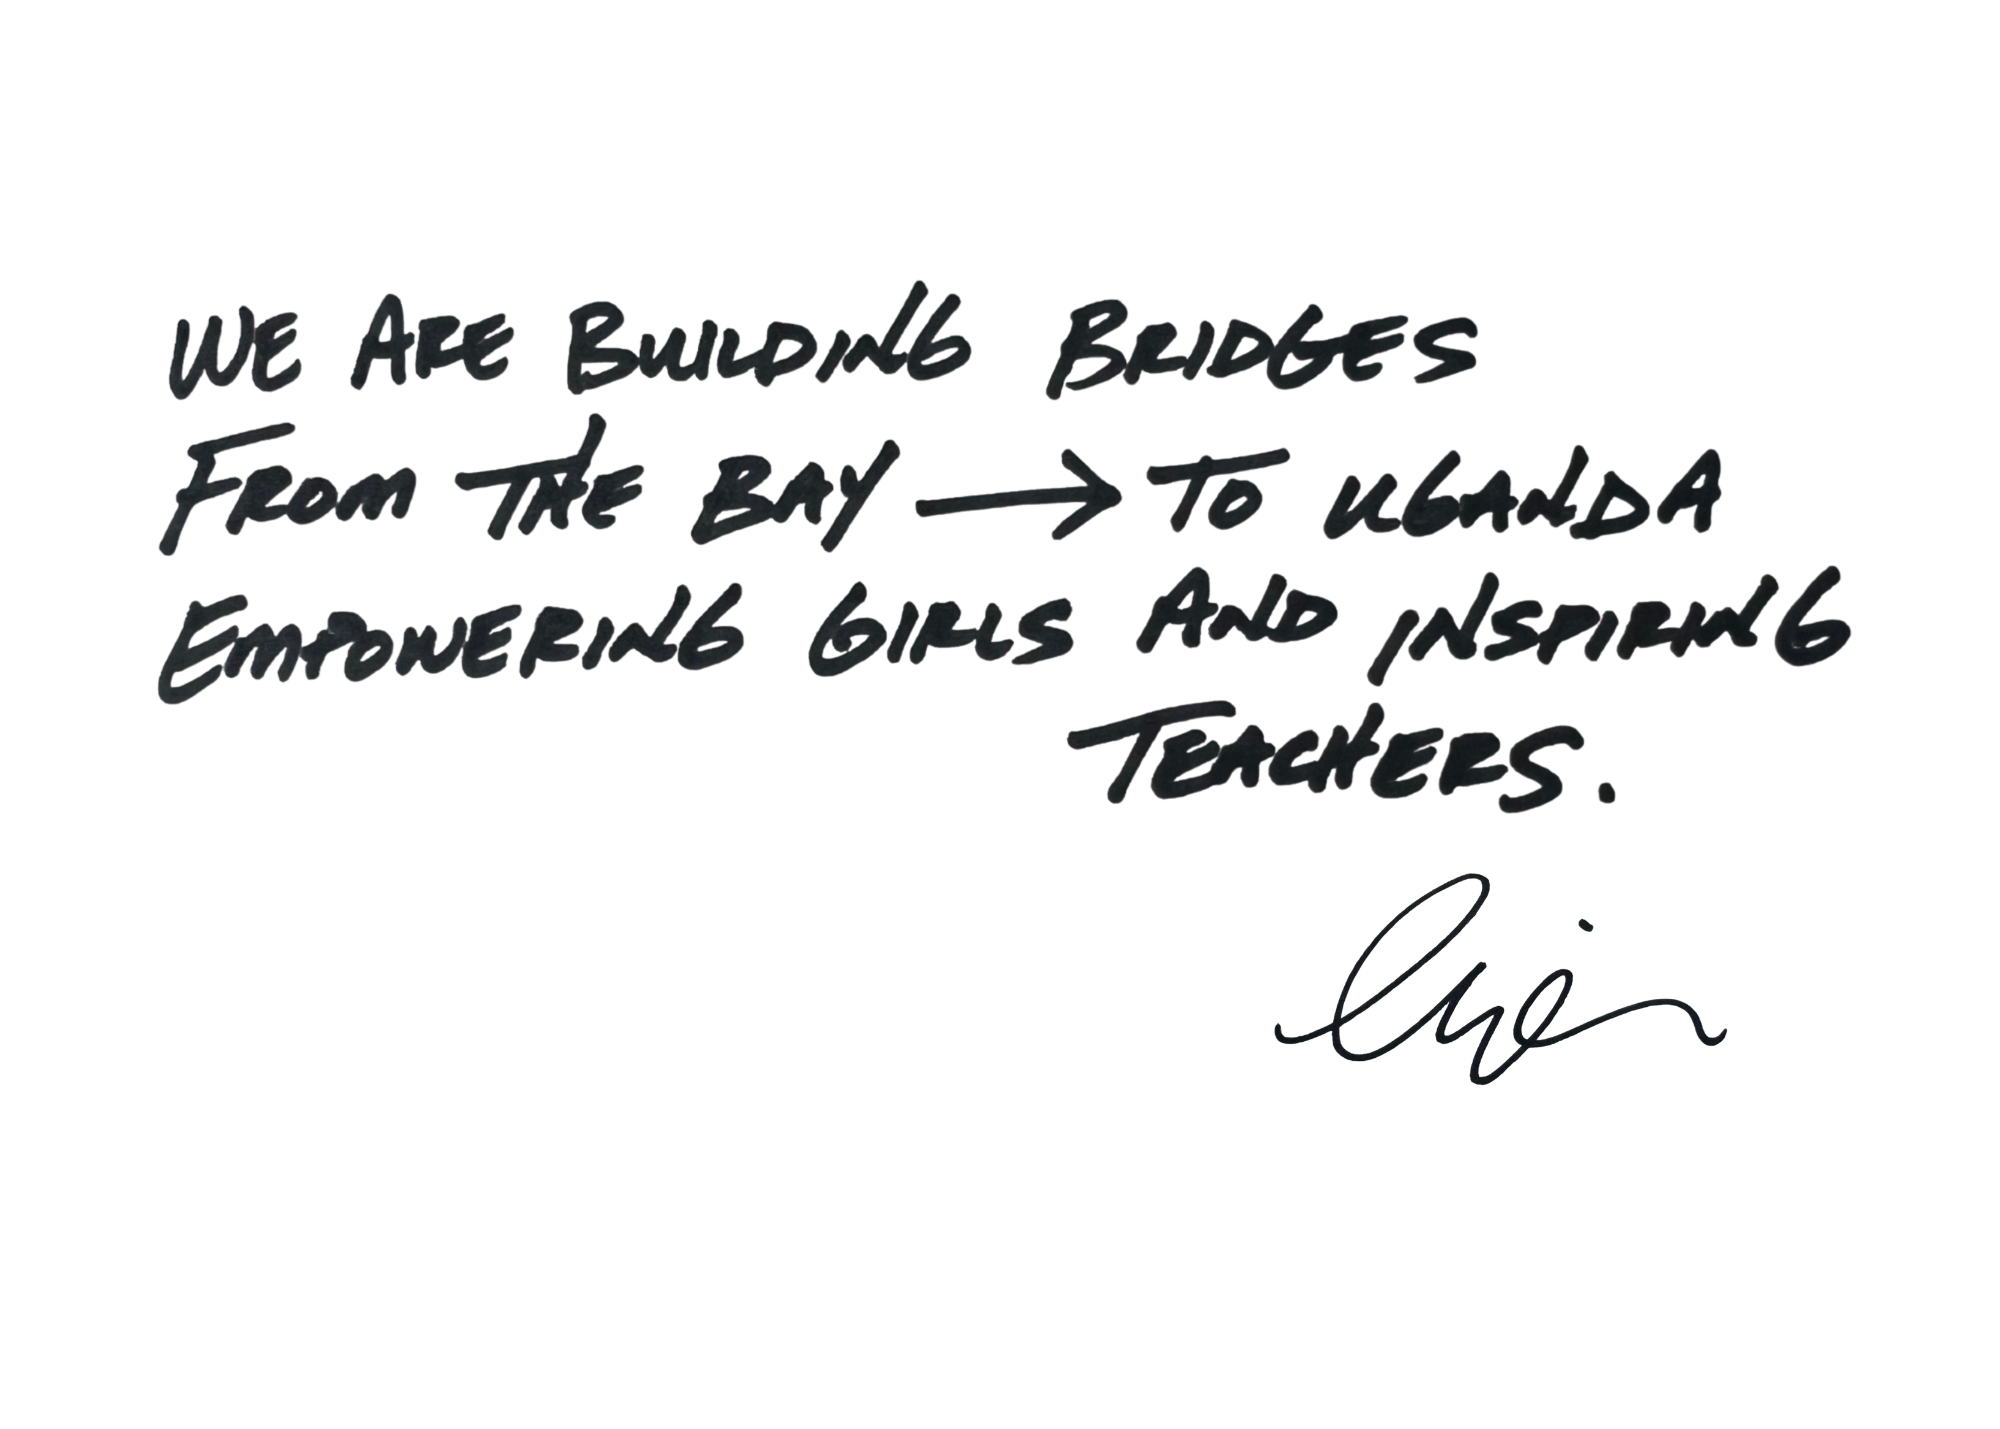 WE ARE BUILDING BRIDGES
FROM THE BAY → TO UGANDA
EMPOWERING GIRLS AND INSPIRING
TEACHERS.